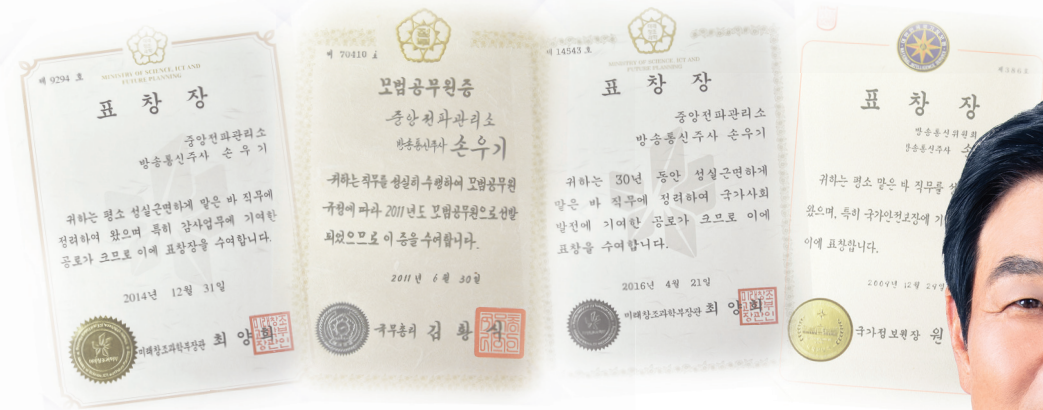 제 9294 호
MINISTRY OF SCIENCE, ICT AND
FUTURE PLANNING
표 창 장
중앙전파관리소
방송통신주사 손 우 기
귀하는 평소 성실근면하게 맡은 바 직무에
정려하여 왔으며 특히 감사업무에 기여한
공로가 크므로 이에 표창장을 수여합니다.
2014년 12월 31일
미래창조과학부장관 최 양 희
제 70410 호
모범공무원증
중앙전파관리소
방송통신주사 손우기
귀하는 직무를 성실히 수행하여 모범공무원
규정에 따라 2011년도 모범공무원으로 선발
되었으므로 이 증을 수여합니다.
2011년 6월 30일
국무총리 김 황 식
제 14543 호
MINISTRY OF SCIENCE, ICT AND
FUTURE PLANNING
표 창 장
중앙전파관리소
방송통신주사 손우기
귀하는 30년 동안 성실근면하게
맡은 바 직무에 정려하여 국가사회
발전에 기여한 공로가 크므로 이에
표창을 수여합니다.
2016년 4월 21일
미래창조과학부장관 최 양 희
표 창 장
방송통신위원회
방송통신주사
귀하는 평소 맡은 바 직무를
왔으며, 특히 국가안전보장에
이에 표창합니다.
국가정보원장 원